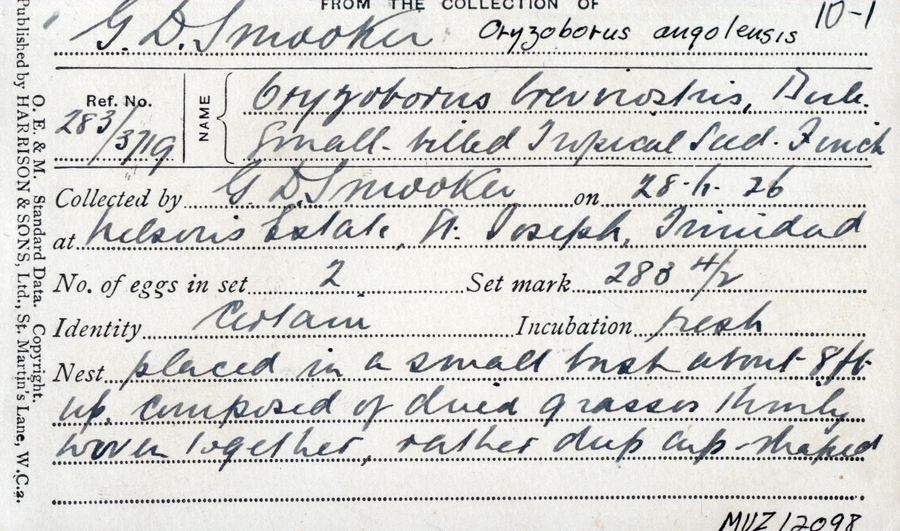 FROM THE COLLECTION OF
G. D. Smooker Oryzoborus angolensis 10-1
Ref. No.
283/3719
NAME
Oryzoborus brevirostris,
Small-billed Tropical Seed-Finch
Collected by G. D. Smooker on 28.4.26
at Nelson's Estate, St. Joseph, Trinidad
No. of eggs in set 2 Set mark 283 4/2
Identity Certain Incubation fresh
Nest placed in a small bush about 8 ft
up, composed of dried grasses thinly
woven together, rather deep cup-shaped
MVZ 12098
O. E. & M. Standard Data. Copyright.
Published by HARRISON & SONS, Ltd., St. Martin's Lane, W.C.2.